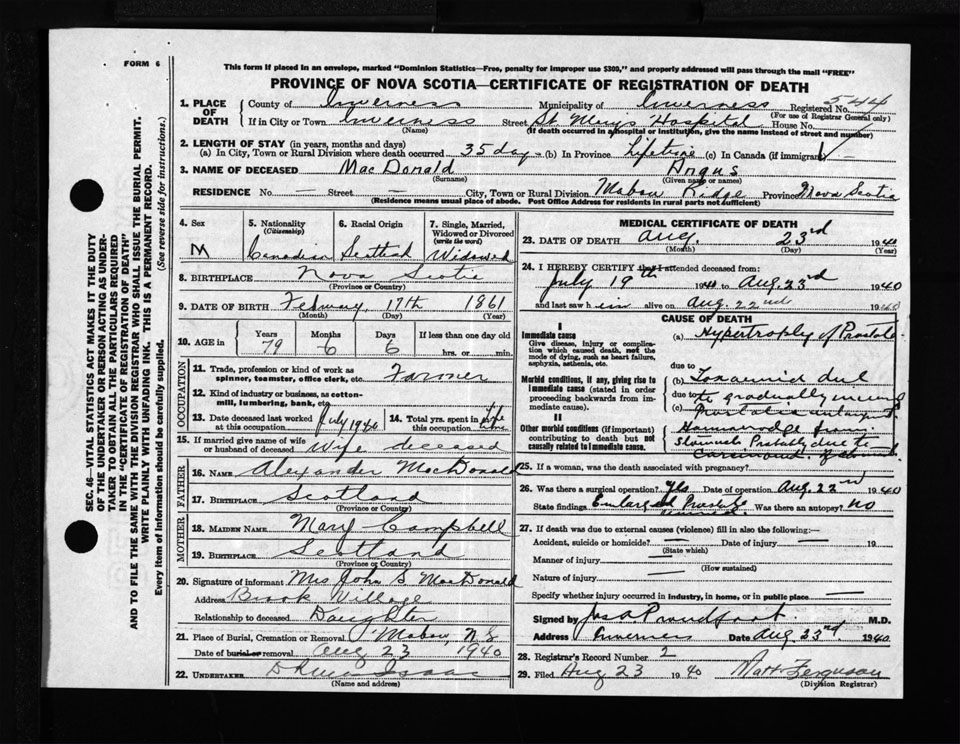 FORM 6
This form if placed in an envelope, marked "Dominion Statistics—Free, penalty for improper use $300," and properly addressed will pass through the mail "FREE"
PROVINCE OF NOVA SCOTIA—CERTIFICATE OF REGISTRATION OF DEATH
SEC. 46—VITAL STATISTICS ACT MAKES IT THE DUTY
OF THE UNDERTAKER OR PERSON ACTING AS UNDER-
TAKER TO OBTAIN ALL THE PARTICULARS REQUIRED
IN THE "CERTIFICATE OF REGISTRATION OF DEATH"
AND TO FILE THE SAME WITH THE DIVISION REGISTRAR WHO SHALL ISSUE THE BURIAL PERMIT.
WRITE PLAINLY WITH UNFADING INK. THIS IS A PERMANENT RECORD.
Every item of information should be carefully supplied. (See reverse side for instructions.)
1. PLACE OF DEATH County of Inverness Municipality of Inverness Registered No. 544
(For use of Registrar General only)
If in City or Town Inverness Street St. Mary's Hospital House No.
(Name) (If death occurred in a hospital or institution, give the name instead of street and number)
2. LENGTH OF STAY (in years, months and days)
(a) In City, Town or Rural Division where death occurred 35 days (b) In Province Lifetime (c) In Canada (if immigrant) —
3. NAME OF DECEASED MacDonald Angus
(Surname) (Given name or names)
RESIDENCE No. — Street — City, Town or Rural Division Mabou Ridge Province Nova Scotia
(Residence means usual place of abode. Post Office Address for residents in rural parts not sufficient)
4. Sex 5. Nationality (Citizenship) 6. Racial Origin 7. Single, Married, Widowed or Divorced (write the word)
M Canadian Scottish Widowed
8. BIRTHPLACE Nova Scotia
(Province or Country)
9. DATE OF BIRTH February 17th 1861
(Month) (Day) (Year)
10. AGE in Years Months Days If less than one day old
79 6 6 hrs. or min.
OCCUPATION
11. Trade, profession or kind of work as spinner, teamster, office clerk, etc. Farmer
12. Kind of industry or business, as cotton-mill, lumbering, bank, etc.
13. Date deceased last worked at this occupation July 1940 14. Total yrs. spent in this occupation Life time
15. If married give name of wife or husband of deceased Wife deceased
FATHER
16. NAME Alexander MacDonald
17. BIRTHPLACE Scotland
(Province or Country)
MOTHER
18. MAIDEN NAME Mary Campbell
19. BIRTHPLACE Scotland
(Province or Country)
20. Signature of informant Mrs John S MacDonald
Address Brook Village
Relationship to deceased Daughter
21. Place of Burial, Cremation or Removal Mabou, N S
Date of burial or removal Aug 23 1940
22. UNDERTAKER Isaac
(Name and address)
MEDICAL CERTIFICATE OF DEATH
23. DATE OF DEATH Aug. 23rd 1940
(Month) (Day) (Year)
24. I HEREBY CERTIFY that I attended deceased from:
July 19th 1940 to Aug. 23rd 1940
and last saw him alive on Aug. 22nd 1940
CAUSE OF DEATH
I
Immediate cause
Give disease, injury or complication which caused death, not the mode of dying, such as heart failure, asphyxia, asthenia, etc.
(a) Hypertrophy of Prostate
due to
Morbid conditions, if any, giving rise to immediate cause (stated in order proceeding backwards from immediate cause).
(b) Toxaemia due
to gradually
due to
(c) Prostatic
II
Other morbid conditions (important) contributing to death but not causally related to immediate cause.
Hemorrhage from
Stomach Probably due to
Carcinoma of stomach
25. If a woman, was the death associated with pregnancy?
26. Was there a surgical operation? Yes Date of operation Aug. 22nd 1940
State findings Enlarged Prostate Was there an autopsy? no
27. If death was due to external causes (violence) fill in also the following:—
Accident, suicide or homicide? — Date of injury — 19
(State which)
Manner of injury —
(How sustained)
Nature of injury —
Specify whether injury occurred in industry, in home, or in public place —
Signed by Jas A Proudfoot M.D.
Address Inverness Date Aug 23rd 1940
28. Registrar's Record Number 2
29. Filed Aug 23 1940 Matt Ferguson
(Division Registrar)